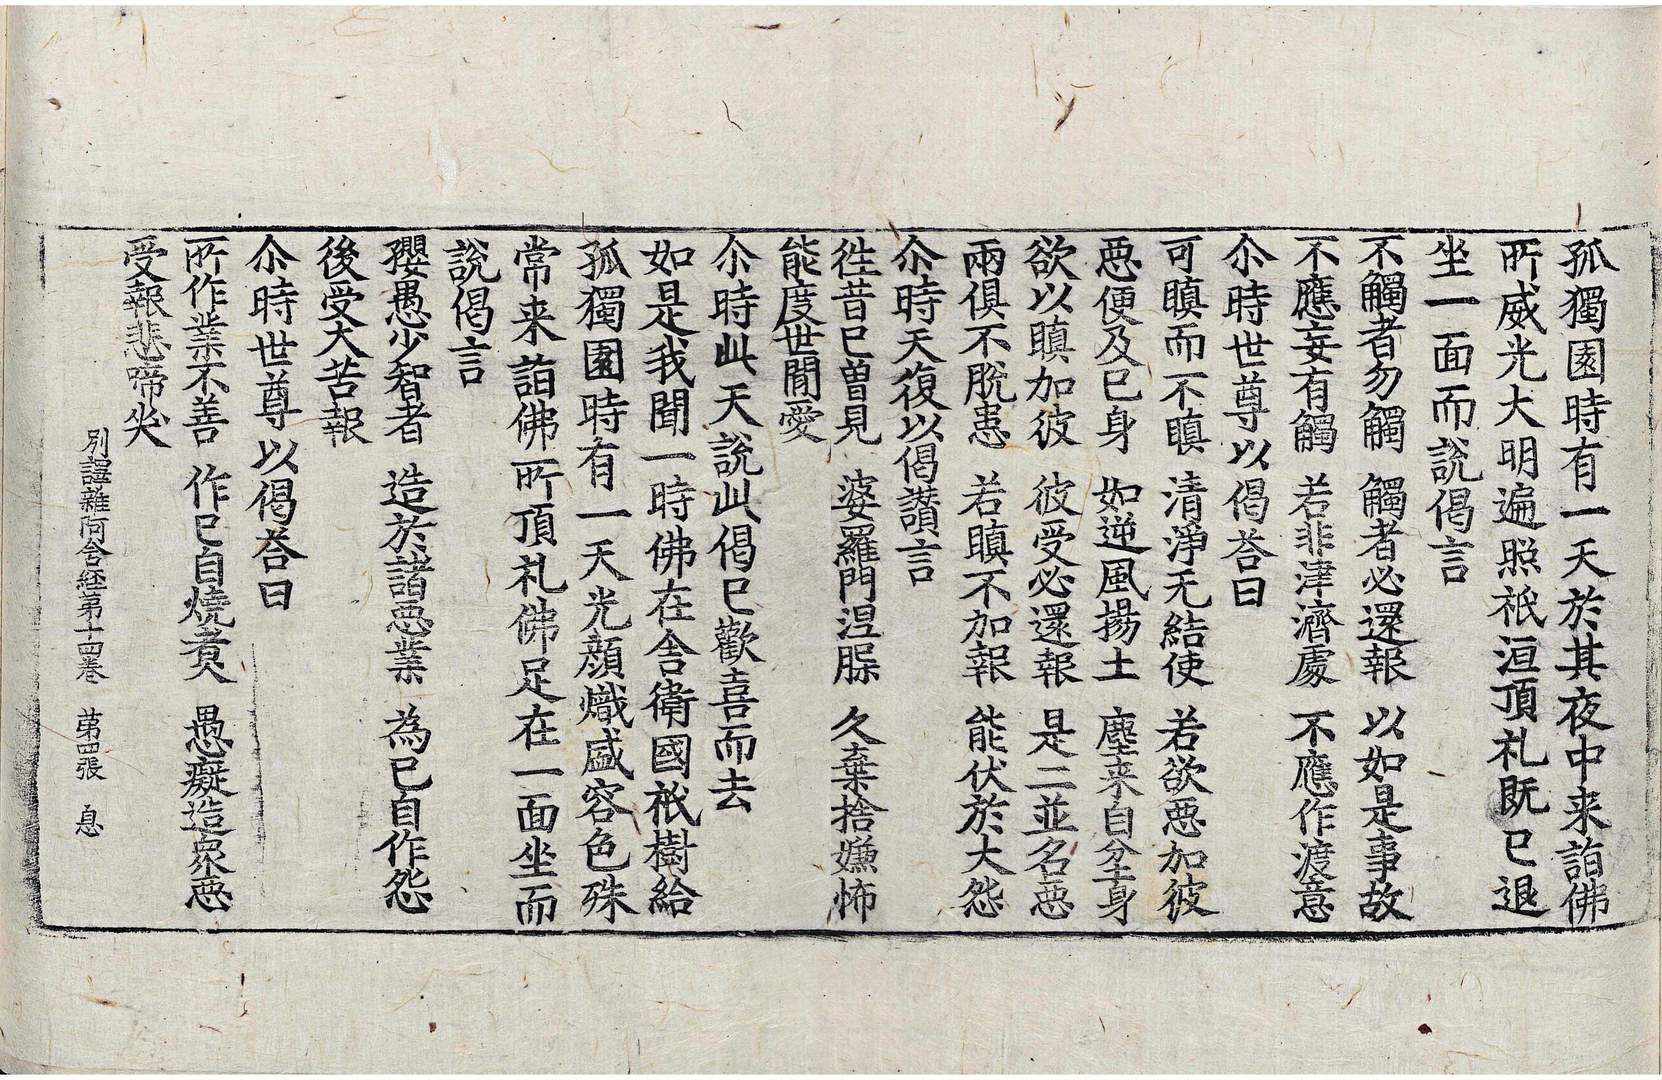 孤獨園時有一天於其夜中来詣佛
所威光大明遍照祇洹頂礼既已退
坐一面而說偈言
不觸者勿觸　觸者必還報　以如是事故
不應妄有觸　若非津濟處　不應作渡意
尒時世尊以偈荅曰
可瞋而不瞋　清淨无結使　若欲惡加彼
惡便及已身　如逆風揚土　塵来自坌身
欲以瞋加彼　彼受必還報　是二並名惡
兩俱不脫患　若瞋不加報　能伏於大怨
尒時天復以偈讃言
徃昔已曽見　婆羅門涅槃　久棄捨嫌怖
能度世間愛
尒時此天說此偈已歡喜而去
如是我聞一時佛在舎衛國祇樹給
孤獨園時有一天光顔熾盛容色殊
常来詣佛所頂礼佛足在一面坐而
說偈言
㜸愚少智者　造於諸惡業　為已自作怨
後受大苦報
尒時世尊以偈荅曰
所作業不善　作已自燒煑　愚癡造衆惡
受報悲啼哭
別譯雜阿舎経第十四巻　第四張　息